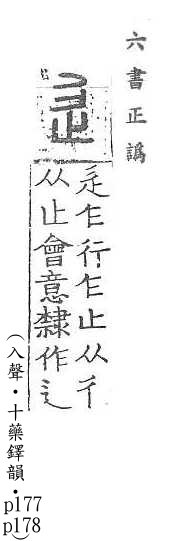 六書正譌
辵
辵乍行乍止从彳
从止會意隸作辶
（入聲・十藥鐸韻・p177
p178）